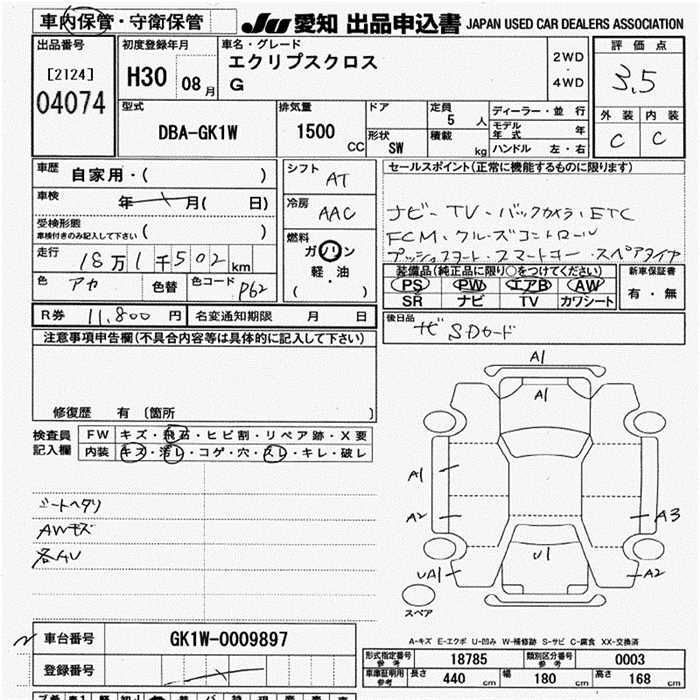 車内保管・守衛保管
JU 愛知 出品申込書 JAPAN USED CAR DEALERS ASSOCIATION
出品番号
[2124]
04074
初度登録年月
H30 08 月
車名・グレード
エクリプスクロス
G
2WD
・
4WD
評価点
3.5
外装 内装
C C
型式
DBA-GK1W
排気量
1500 CC
ドア
形状
SW
定員
5 人
積載
kg
ディーラー・並 行
モデル年式 年
ハンドル 左・右
車歴
自家用・( )
車検
年 月( 日)
受検形態
車検付きのみ記入して下さい ( )
走行
18万1千502 km
色 アカ 色替 色コード P62
シフト
AT
冷房
AAC
燃料
ガソリン
軽・油
( )
セールスポイント(正常に機能するものに限ります)
ナビ・TV・バックカメラ・ETC
FCM・クルーズコントロール
プッシュスタート・スマートキー・スペアタイヤ
装備品(純正品に限り○をつけてください)
PS PW エアB AW
SR ナビ TV カワシート
新車保証書
有・無
R券 11,800 円
名変通知期限 月 日
後日品
ナビSDカード
注意事項申告欄(不具合内容等は具体的に記入して下さい)
修復歴 有 〔箇所 〕
検査員
記入欄
FW キズ・飛石・ヒビ割・リペア跡・X要
内装 キズ・汚レ・コゲ・穴・スレ・キレ・破レ
シートヘタリ
AWキズ
各AU
A1
A1
A1
A2
A3
U1
UA1
A2
スペア
A-キズ E-エクボ U-凹み W-補修跡 S-サビ C-腐食 XX-交換済
車台番号 GK1W-0009897
登録番号
形式指定番号
参考
18785
類別区分番号
参考
0003
車庫証明用
参考
長さ 440 cm 幅 180 cm 高さ 168 cm